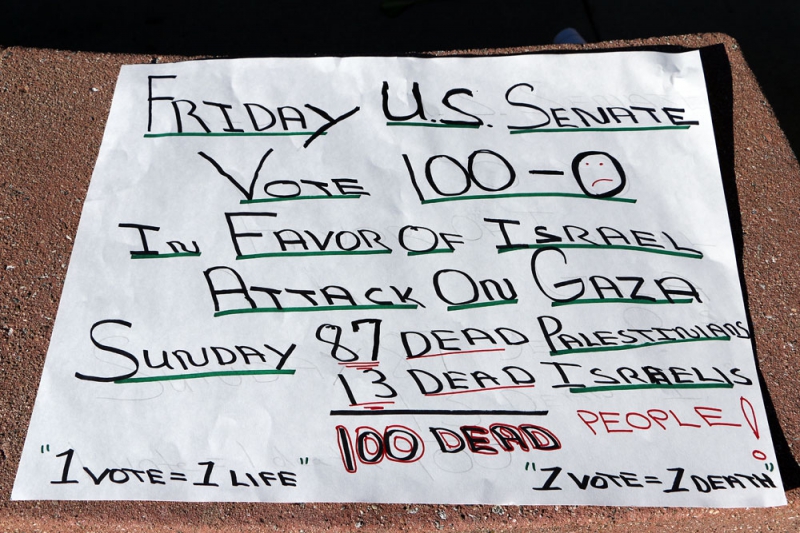 FRIDAY U.S. SENATE
VOTE 100-0
IN FAVOR OF ISRAEL
ATTACK ON GAZA
SUNDAY 87 DEAD PALESTINIANS
13 DEAD ISRAELIS
100 DEAD PEOPLE!
"1 VOTE = 1 LIFE" "1 VOTE = 1 DEATH"